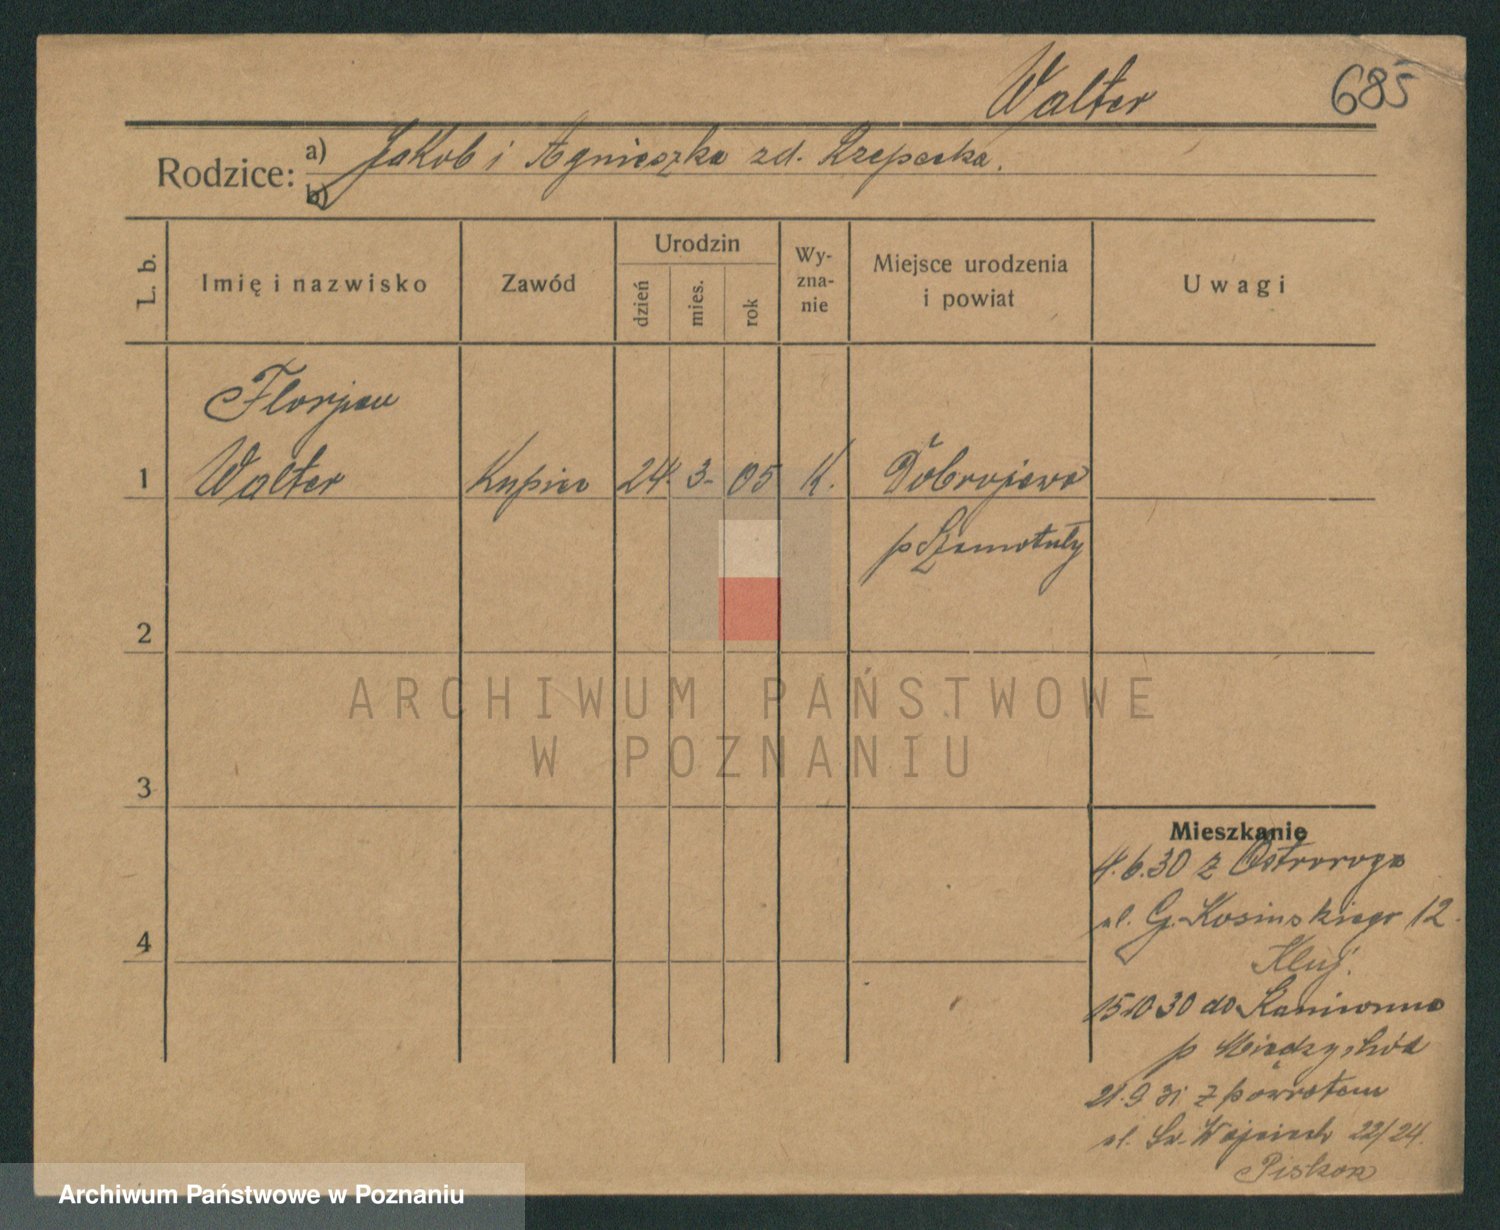 Walter
685
Rodzice:
a) Jakob i Agnieszka zd. Rzepecka.
b)
L. b.
Imię i nazwisko
Zawód
Urodzin
dzień
mies.
rok
Wy-
zna-
nie
Miejsce urodzenia
i powiat
Uwagi
Florjan
1 Walter Kupiec 24. 3. 05 K. Dobrojewo
p Szamotuły
2
3
4
Mieszkanie
4.6.30 z Ostroroga
ul. G. Kosinskiego 12.
15 10 30 do
p Międzychód
21.9 31 z powrotem
ul. Św. Wojciech 22/24.
ARCHIWUM PAŃSTWOWE
W POZNANIU
Archiwum Państwowe w Poznaniu